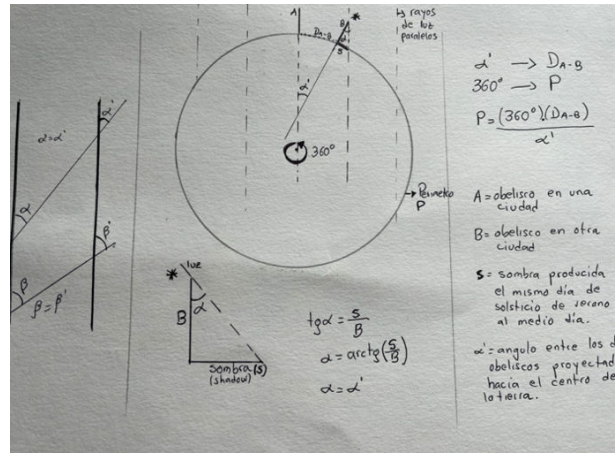 α=α'
α'
α
β'
β
β=β'
A
D A-B
B
*
α
s
α'
360°
Ly rayos
de luz
paralelos
→ Perímetro
P
* luz
B
α
Sombra (s)
(shadow)
tgα = S/B
α = arctg(S/B)
α = α'
α' → D A-B
360° → P
P = (360°)(D A-B)
α'
A = obelisco en una
ciudad
B = obelisco en otra
ciudad
S = sombra producida
el mismo día de
solsticio de verano
al medio día.
α' = angulo entre los d
obeliscos proyectad
hacia el centro de
la tierra.